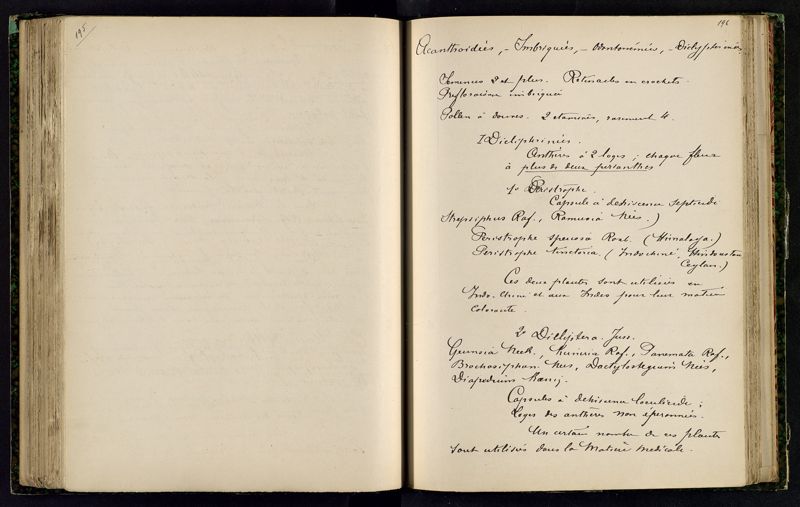 195
196
Acanthoidées, - Imbriquées, - Odontonémées, - Dicliptérinées
Semences 2 et plus. Rétinacles en crochets.
Préfloraison imbriquée
Pollen à douves. 2 étamines, rarement 4.
I Dicliptérinées.
Anthères à 2 loges ; chaque fleur
à plus de deux périanthes
1º Peristrophe.
Capsule à déhiscence septicide
Strepsiphus Raf., Ramusia Nées.)
Peristrophe speciosa Roxb. (Himalaya.)
Peristrophe tinctoria (Indochine, Hindoustan
Ceylan.)
Ces deux plantes sont utilisées en
Indo-Chine et aux Indes pour leur matière
colorante.
2º Dicliptera. Juss.
Neck., Raf., Panemata Raf.,
Brochosiphon Nees, Dactylostegium Nees,
Diapedium
Capsules à déhiscence loculicide ;
Loges des anthères non éperonnées.
Un certain nombre de ces plantes
sont utilisées dans la Matière médicale.